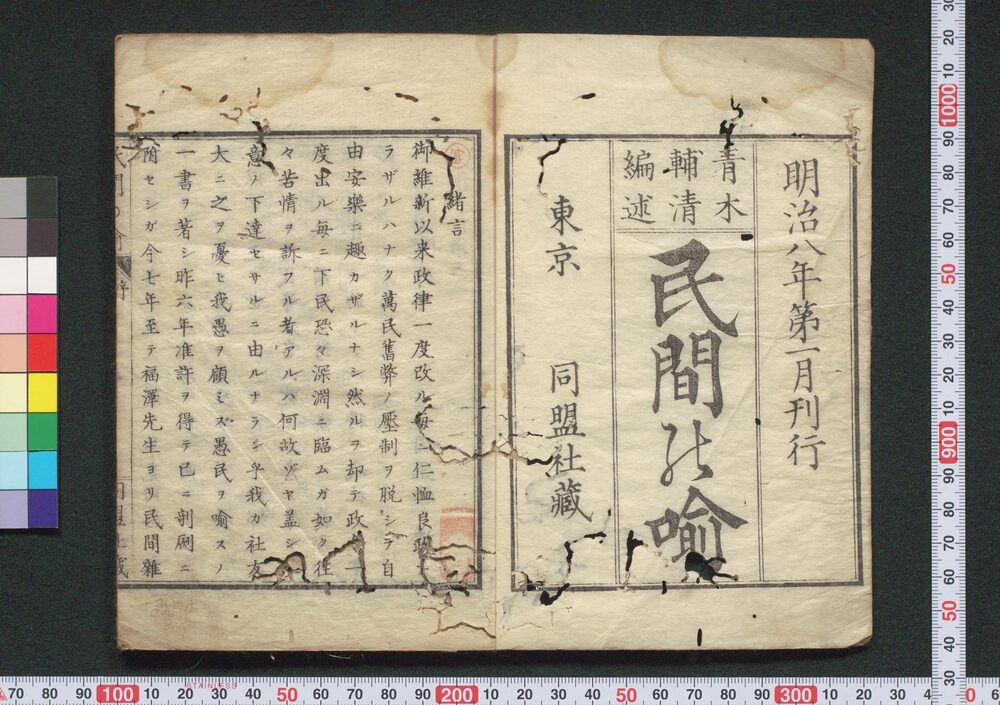 明治八年第一月刊行
青木
輔清
編述
民間の喩
東京 同盟社藏
緒言
御維新以来政律一度改ル毎ニ仁恤良政
ラザルハナク萬民舊弊ノ壓制ヲ脱シテ自
由安樂ニ趣カザルナシ然ルヲ却テ政一
度出ル毎ニ下民恐々深淵ニ臨ムガ如ク往
々苦情ヲ訴フル者アルハ何故ゾヤ蓋シ
意ノ下達セサルニ由ルナラン乎我カ社友
大ニ之ヲ憂ヒ我愚ヲ顧ミズ愚民ヲ喻スノ
一書ヲ著シ昨六年准許ヲ得テ已ニ剞劂ニ
附セシガ今七年至テ福澤先生ヨリ民間雜